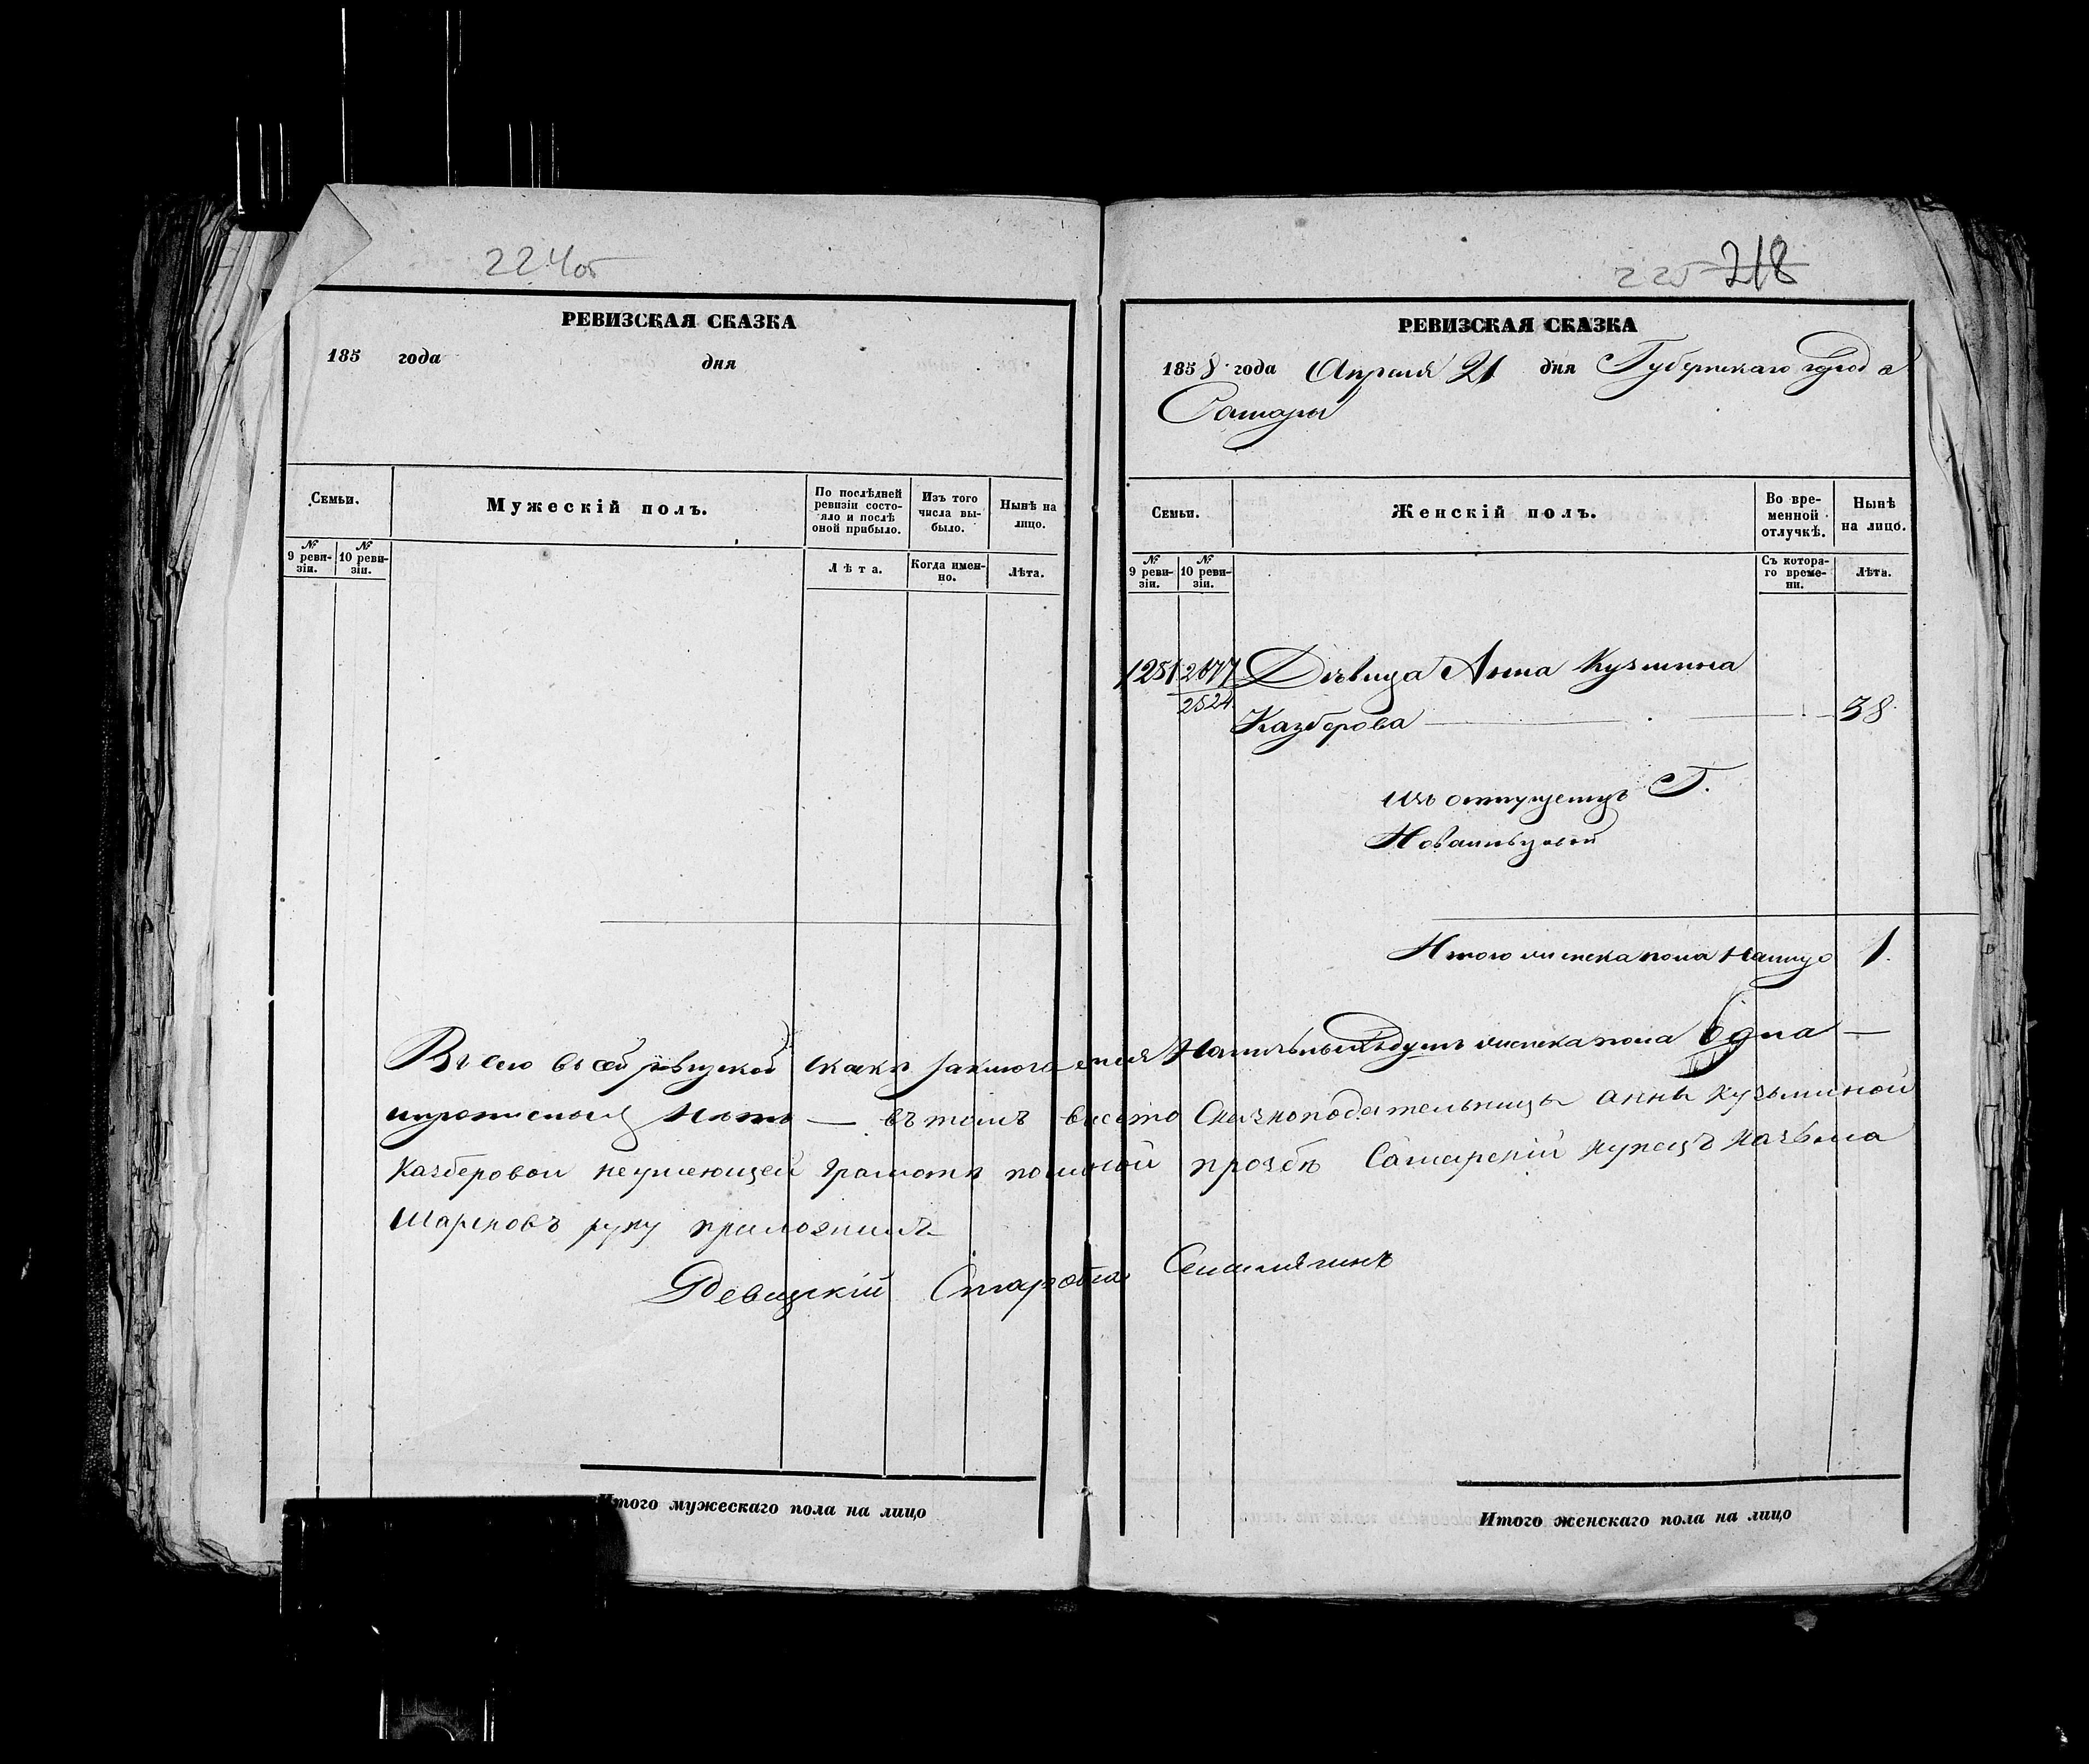 224об
РЕВИЗСКАЯ СКАЗКА
185 года дня
Семьи.
Мужескій полъ.
По послѣдней ревизіи состояло и послѣ оной прибыло.
Изъ того числа выбыло.
Нынѣ на лицо.
№ 9 ревизіи.
№ 10 ревизіи.
Лѣта.
Когда именно.
Лѣта.
225 218
РЕВИЗСКАЯ СКАЗКА
1858 года Апреля 21 дня Губернскаго города
Самары
Семьи.
Женскій полъ.
Во временной отлучкѣ.
Нынѣ на лицо.
№ 9 ревизіи.
№ 10 ревизіи.
Съ котораго времени.
Лѣта.
1251 2677 Дѣвица Анна Кузмина
2524
Казберова 38
изъ отпущенныхъ Г.
Итого женска пола налицо 1.
Всего въ сей ревизской скаскѣ заключается Наличныхъ душъ женска пола Одна
прописныхъ Нѣтъ — въ томъ вместо Сказкоподательницы анны кузьминой
Казберовой неумеющей грамотѣ поличной прозбѣ Самарскій купецъ козьма
руку приложилъ
Ревизскій Староста
Итого мужескаго пола на лицо
Итого женскаго пола на лицо